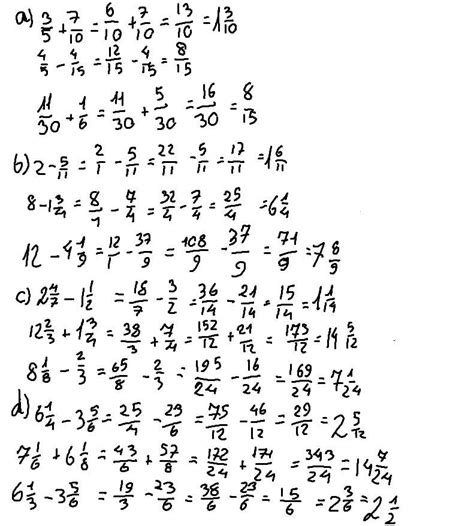 a) 3/5 + 7/10 = 6/10 + 7/10 = 13/10 = 1 3/10
4/5 - 4/15 = 12/15 - 4/15 = 8/15
11/30 + 1/6 = 11/30 + 5/30 = 16/30 = 8/15
b) 2 - 5/11 = 2/1 - 5/11 = 22/11 - 5/11 = 17/11 = 1 6/11
8 - 1 3/4 = 8/1 - 7/4 = 32/4 - 7/4 = 25/4 = 6 1/4
12 - 4 1/9 = 12/1 - 37/9 = 108/9 - 37/9 = 71/9 = 7 8/9
c) 2 4/7 - 1 1/2 = 18/7 - 3/2 = 36/14 - 21/14 = 15/14 = 1 1/14
12 2/3 + 1 3/4 = 38/3 + 7/4 = 152/12 + 21/12 = 173/12 = 14 5/12
8 1/8 - 2/3 = 65/8 - 2/3 = 195/24 - 16/24 = 169/24 = 7 1/24
d) 6 1/4 - 3 5/6 = 25/4 - 23/6 = 75/12 - 46/12 = 29/12 = 2 5/12
7 1/6 + 6 1/8 = 43/6 + 57/8 = 172/24 + 171/24 = 343/24 = 14 7/24
6 1/3 - 3 5/6 = 19/3 - 23/6 = 38/6 - 23/6 = 15/6 = 2 3/6 = 2 1/2